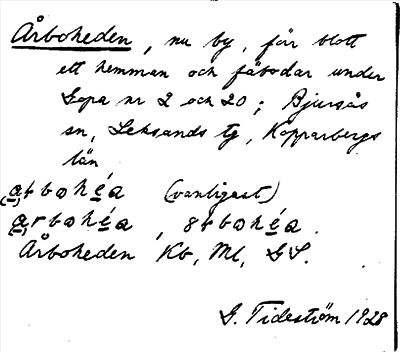 Årboheden, nu by, förr blott
ett hemman och fäbodar under
Sopa nr 2 och 20; Bjursås
sn, Leksands tg, Kopparbergs
län
(vanligast)
Årboheden Kb, Ml, GS.
G. Tideström 1928